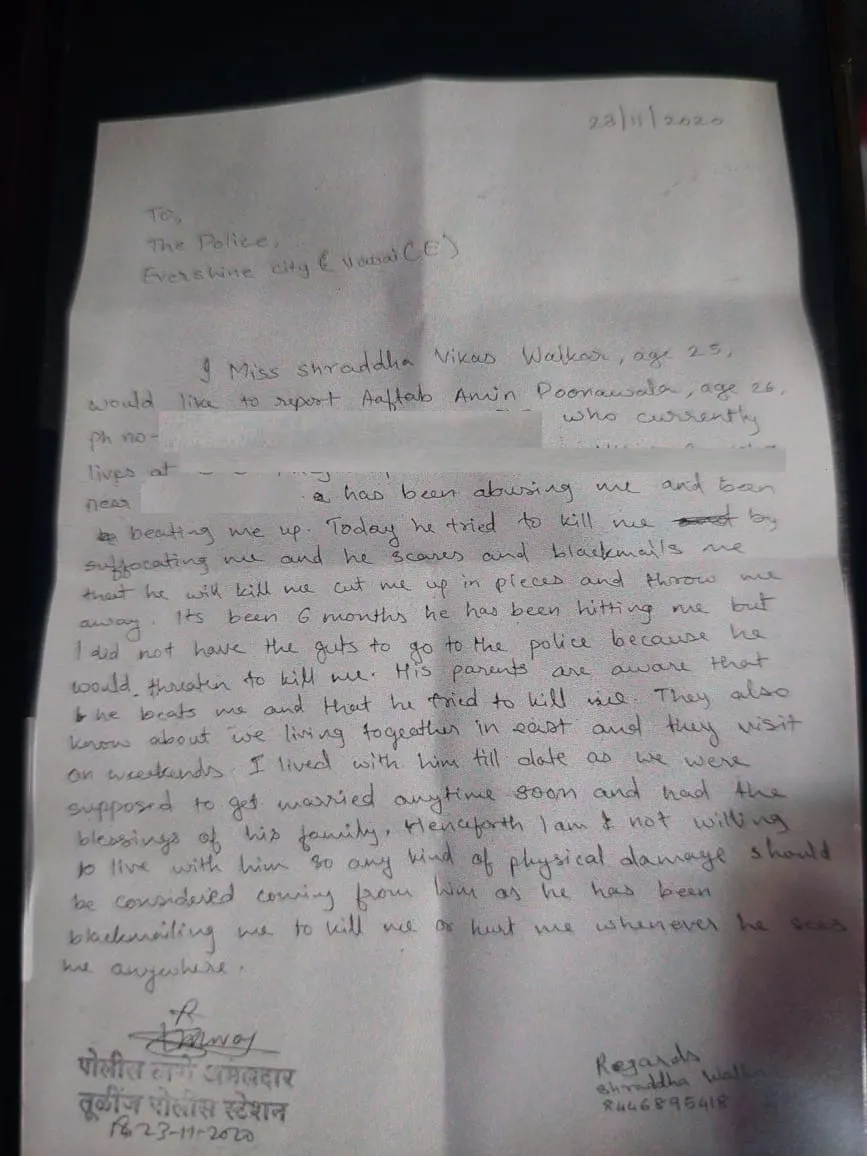 23/11/2020
To,
The Police,
Evershine city (Vasai (E)
I Miss Shraddha Vikas Walkar, age 25,
would like to report Aaftab Amin Poonawala, age 26,
ph no- who currently
lives at
near has been abusing me and been
beating me up. Today he tried to kill me by
suffocating me and he scares and blackmails me
that he will kill me cut me up in pieces and throw me
away. Its been 6 months he has been hitting me but
I did not have the guts to go to the police because he
would threaten to kill me. His parents are aware that
he beats me and that he tried to kill me. They also
know about we living togeather in east and they visit
on weekends. I lived with him till date as we were
supposed to get married anytime soon and had the
blessings of his family. Henceforth I am not willing
to live with him so any kind of physical damage should
be considered coming from him as he has been
blackmailing me to kill me or hurt me whenever he sees
me anywhere.
पोलीस ठाणे अंमलदार
तूळींज पोलीस स्टेशन
23-11-2020
Regards
Shraddha Walkar
8446895418